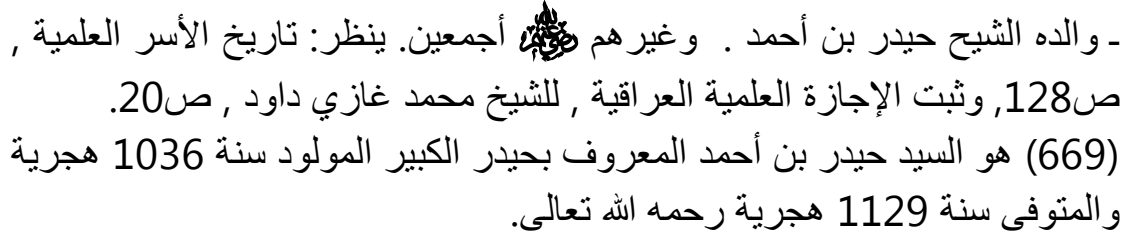 ـ والده الشيح حيدر بن أحمد . وغيرهم أجمعين. ينظر: تاريخ الأسر العلمية ,
ص128, وثبت الإجازة العلمية العراقية , للشيخ محمد غازي داود , ص20.
(669) هو السيد حيدر بن أحمد المعروف بحيدر الكبير المولود سنة 1036 هجرية
والمتوفى سنة 1129 هجرية رحمه الله تعالى.